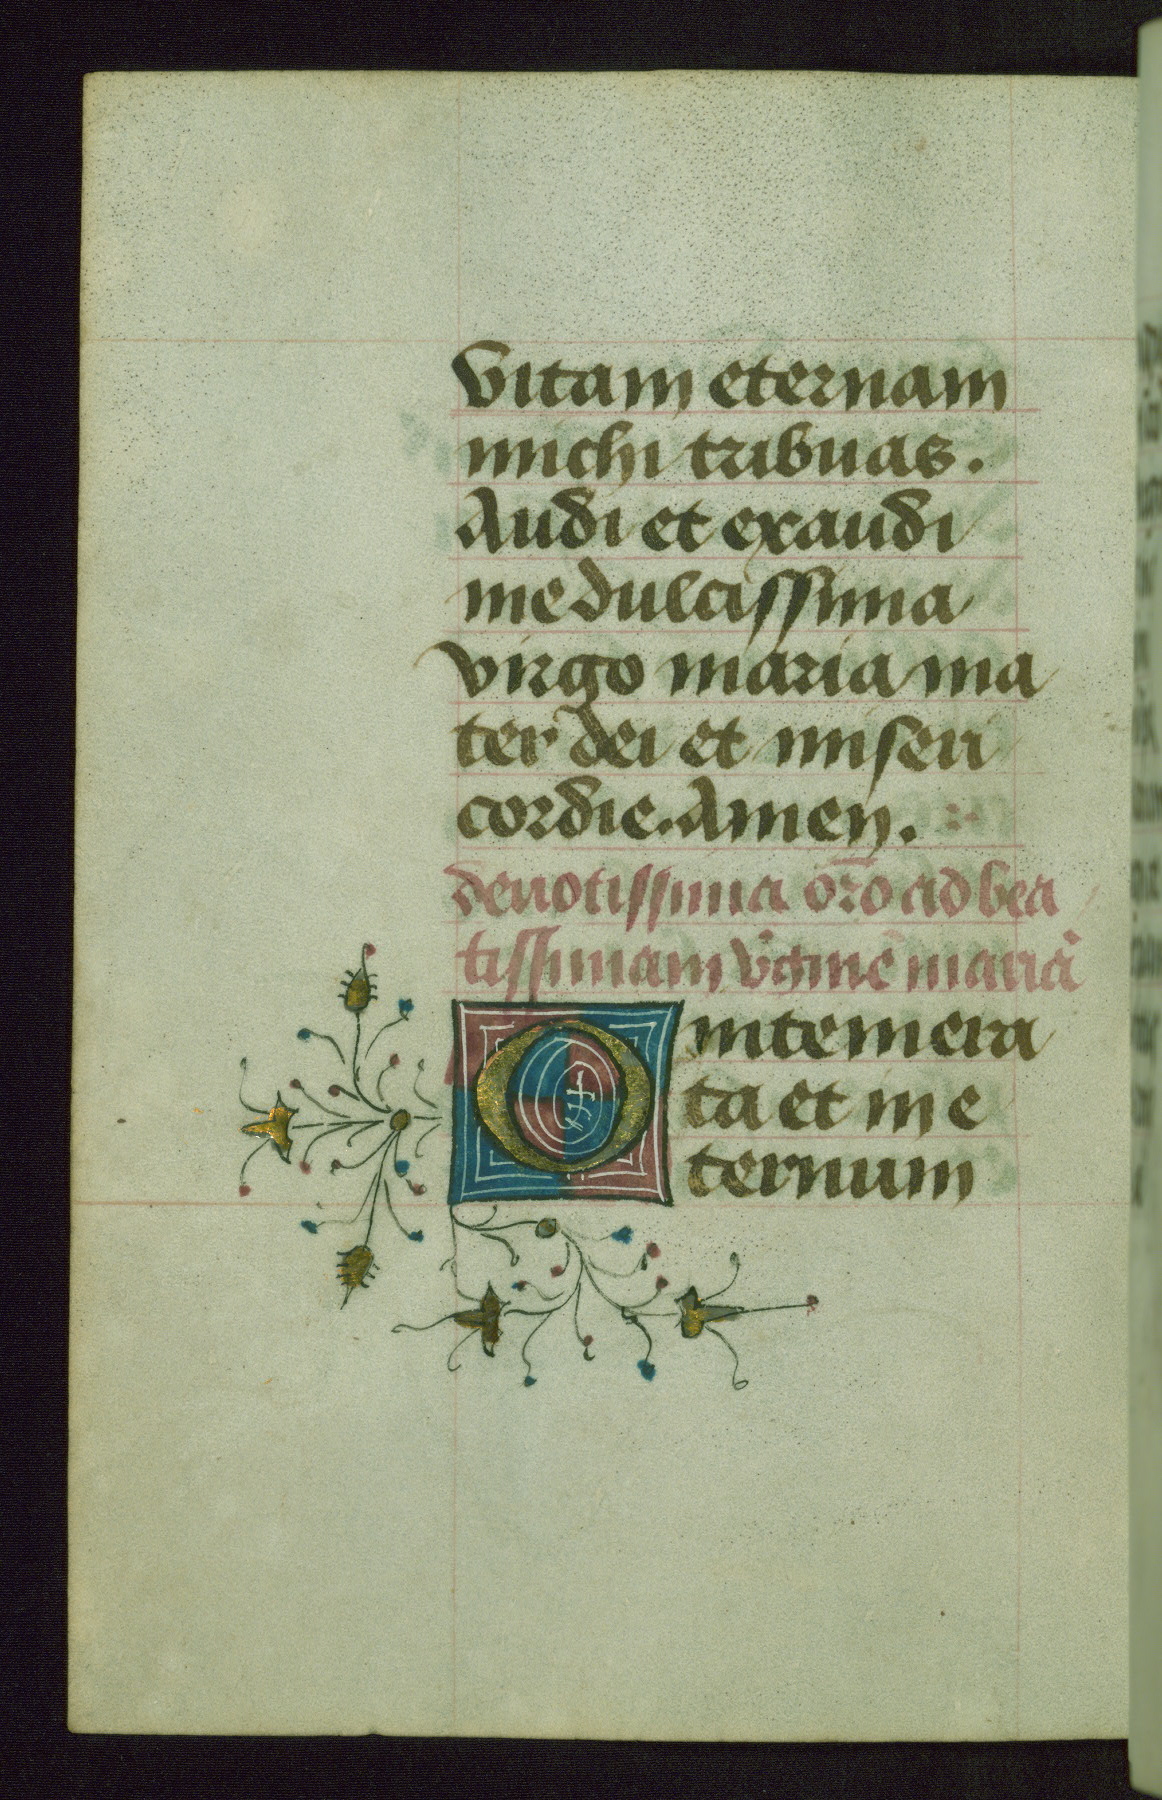 Vitam eternam
michi tribuas.
Audi et exaudi
me dulcissima
virgo maria ma
ter dei et miseri
cordie. Amen.
deuotissima or̄o ad bea
tissimam v̄ginē mariā
O intemera
ta et in e
ternum